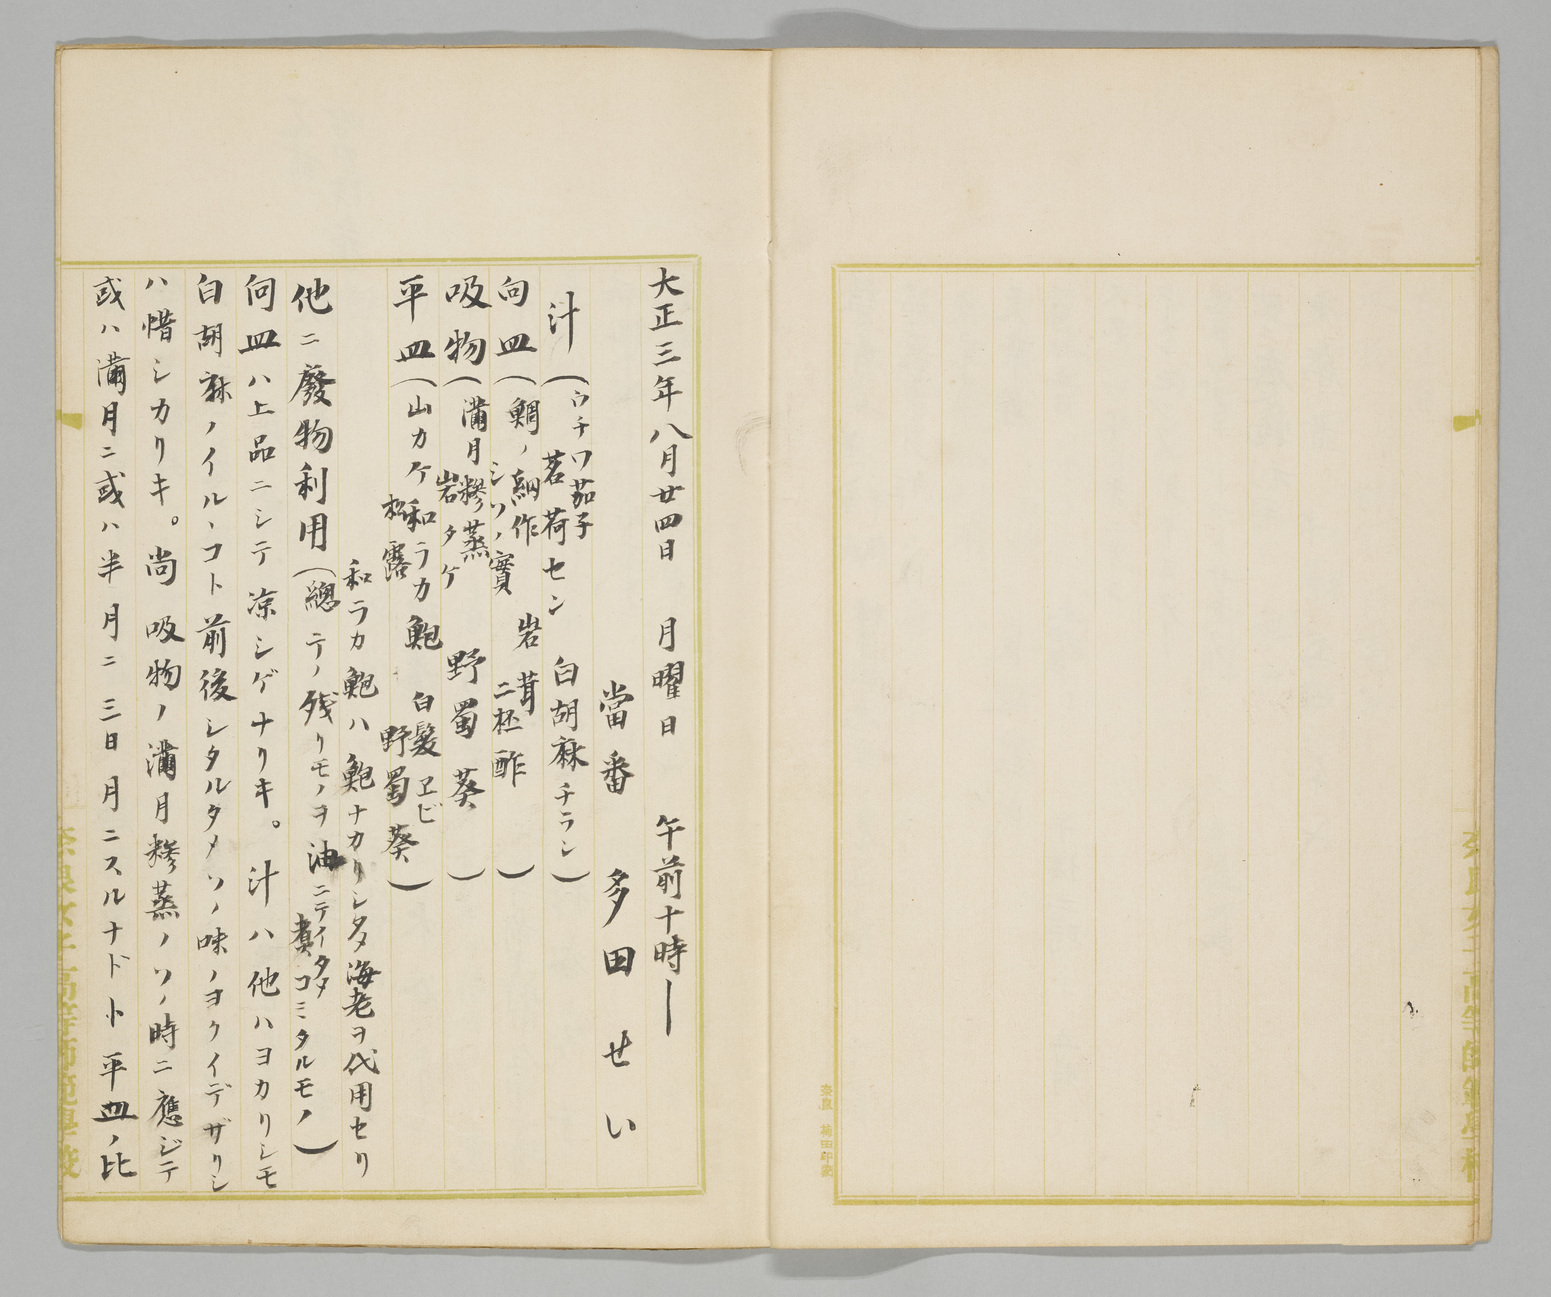 大正三年八月廿四日 月曜日 午前十時―
當番 多田せい
汁(ウチワ茄子 白胡麻チラシ)
茗荷セン
向皿(鯛ノ網作 岩茸)
シソノ實 二杯酢
吸物(満月糝蒸 野蜀葵)
岩タケ
平皿(山カケ和ラカ鮑 白髪ヱビ)
松露 野蜀葵
和ラカ鮑ハ鮑ナカリシタメ海老ヲ代用セリ
他ニ廢物利用(總テノ残リモノヲ油ニテイタメ
煮コミタルモノ)
向皿ハ上品ニシテ凉シゲナリキ。汁ハ他ハヨカリシモ
白胡麻ノイルヽコト前後シタルタメソノ味ノヨクイデザリシ
ハ惜シカリキ。尚吸物ノ満月糝蒸ノソノ時ニ應ジテ
或ハ満月ニ或ハ半月ニ三日月ニスルナド ト平皿ノ比
奈良女子高等師範學校
奈良 梅田印刷
奈良女子高等師範學校